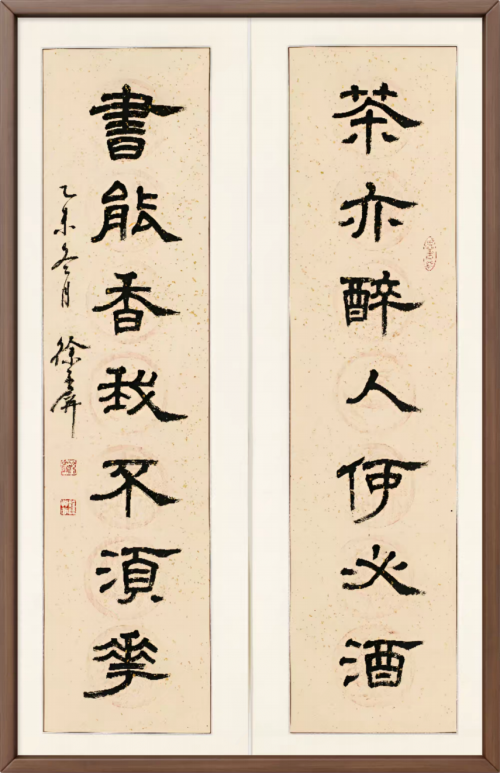 茶亦醉人何必酒
書能香我不須華
乙未冬月
徐屏